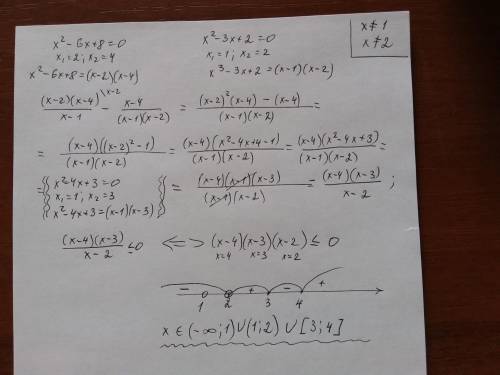 x² - 6x + 8 = 0
x₁ = 2; x₂ = 4
x² - 6x + 8 = (x-2)(x-4)
x² - 3x + 2 = 0
x₁ = 1; x₂ = 2
x³ - 3x + 2 = (x-1)(x-2)
x ≠ 1
x ≠ 2
(x-2)(x-4)/(x-1) \x-2 - (x-4)/((x-1)(x-2)) = ((x-2)²(x-4) - (x-4))/((x-1)(x-2)) =
= (x-4)((x-2)² - 1)/((x-1)(x-2)) = (x-4)(x² - 4x + 4 - 1)/((x-1)(x-2)) = (x-4)(x² - 4x + 3)/((x-1)(x-2)) =
= { x² - 4x + 3 = 0
x₁ = 1; x₂ = 3
x² - 4x + 3 = (x-1)(x-3) } = (x-4)(x-1)(x-3)/((x-1)(x-2)) = (x-4)(x-3)/(x-2) ;
(x-4)(x-3)/(x-2) ≤ 0 <=> (x-4)(x-3)(x-2) ≤ 0
x=4 x=3 x=2
- + - +
1 2 3 4
x ∈ (-∞; 1) ∪ (1; 2) ∪ [3; 4]